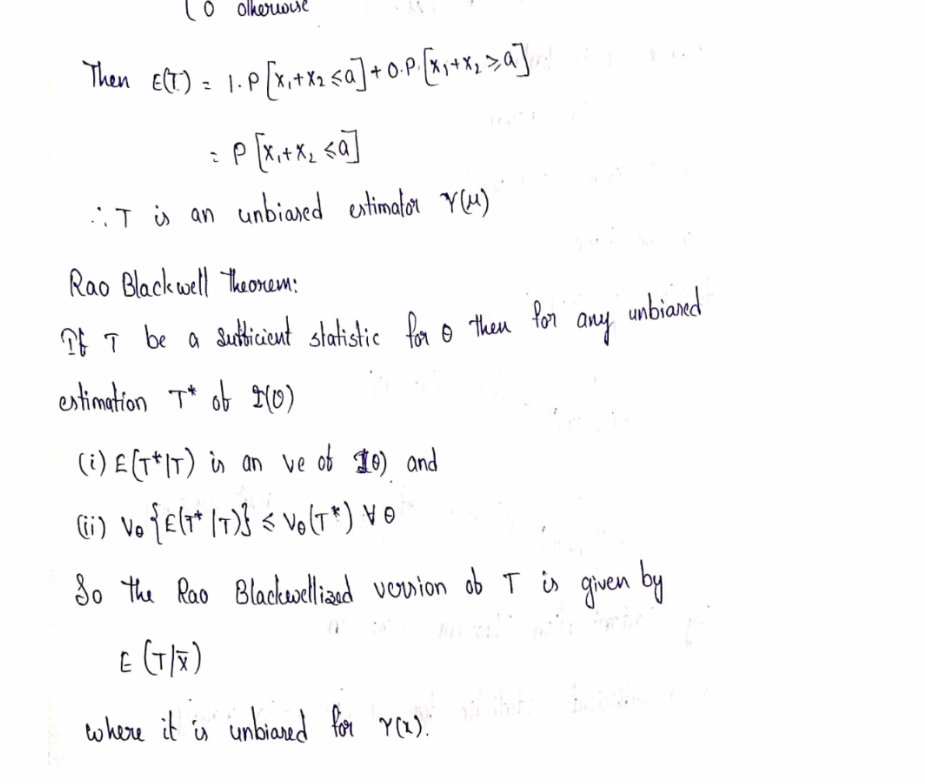 { 0 otherwise
Then E(T) = 1. P [x₁+x₂ ≤a] + 0.P. [x₁+x₂ ≥a]
= P [x₁+x₂ ≤a]
∴ T is an unbiased estimator γ(μ)
Rao Blackwell Theorem:
If T be a sufficient statistic for θ then for any unbiased
estimation T* of I(θ)
(i) E(T*|T) is an ve of Iθ) and
(ii) Vθ {E(T* |T)} ≤ Vθ(T*) ∀ θ
So the Rao Blackwellized version of T is given by
E (T/x̄)
where it is unbiased for γ(x).